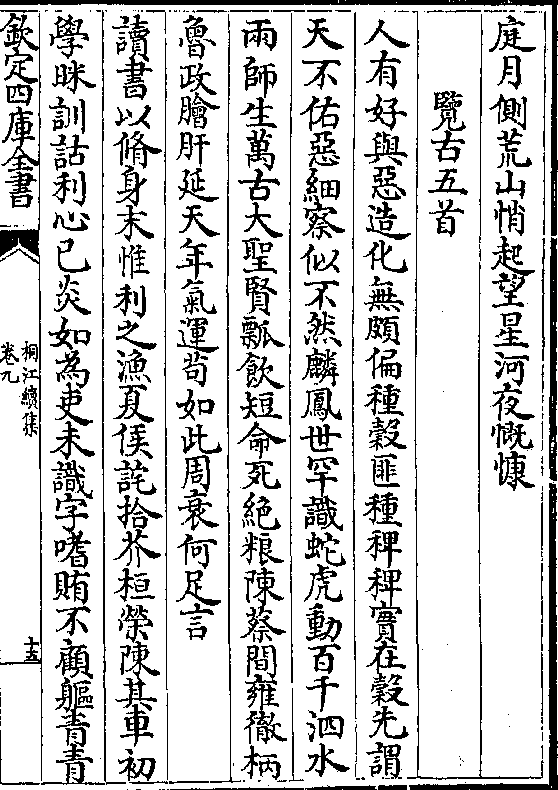 庭月側荒山悄起望星河夜慨慷
覽古五首
人有好與惡造化無頗偏種榖匪種稗稗實在榖先謂
天不佑惡細察似不然麟鳳世罕識蛇虎動百千泗水
兩師生萬古大聖賢瓢飲短命死絶粮陳蔡間雍徹柄
魯政膾肝延天年氣運苟如此周衰何足言
讀書以脩身末惟利之漁夏侯詫拾芥桓榮陳其車初
學眯訓詁利心已炎如為吏未識字嗜賄不顧軀青青
欽定四庫全書
桐江續集
卷九
十五